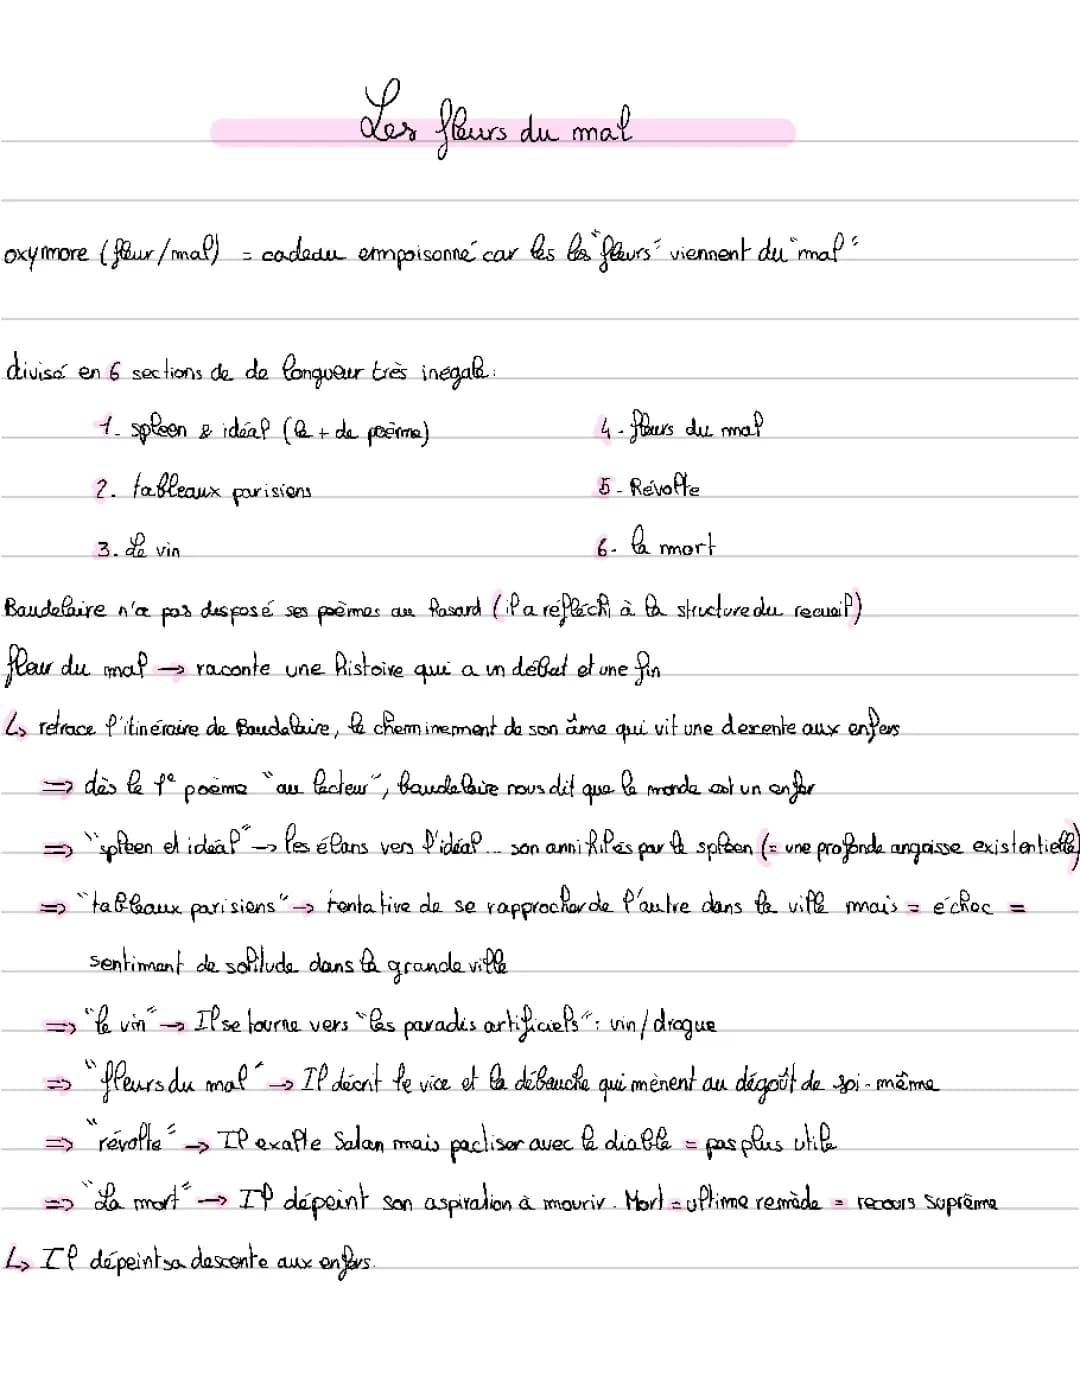 Les fleurs du mal
oxymore (fleur/mal) = cadeau empoisonné car les les "fleurs" viennent du "mal"
divisé en 6 sections de de longueur très inégale:
1. spleen & idéal (le + de poème)
2. tableaux parisiens
3. Le vin
4 - fleurs du mal
5 - Révolte
6 - la mort
Baudelaire n'a pas desposé ses poèmes au hasard (il a réfléchi à la structure du recueil)
fleur du mal → raconte une histoire qui a un début et une fin
↳ retrace l'itinéraire de Baudelaire, le cheminement de son âme qui vit une descente aux enfers
⇒ dès le 1e poème "au lecteur", baudelaire nous dit que le monde est un enfer
⇒ "spleen et idéal" → les élans vers l'idéal... son annihilés par le spleen (= une profonde angoisse existentielle)
⇒ "tableaux parisiens" → tentative de se rapprocher de l'autre dans la ville mais = échec =
sentiment de solitude dans la grande ville
⇒ "le vin" → Il se tourne vers "les paradis artificiels": vin/drogue
⇒ "fleurs du mal" → Il décrit le vice et la débauche qui mènent au dégoût de soi-même
⇒ "révolte" → Il exalte Satan mais pactiser avec le diable = pas plus utile
⇒ "La mort" → Il dépeint son aspiration à mourir. Mort = ultime remède = recours suprême
↳ Il dépeint sa descente aux enfers.